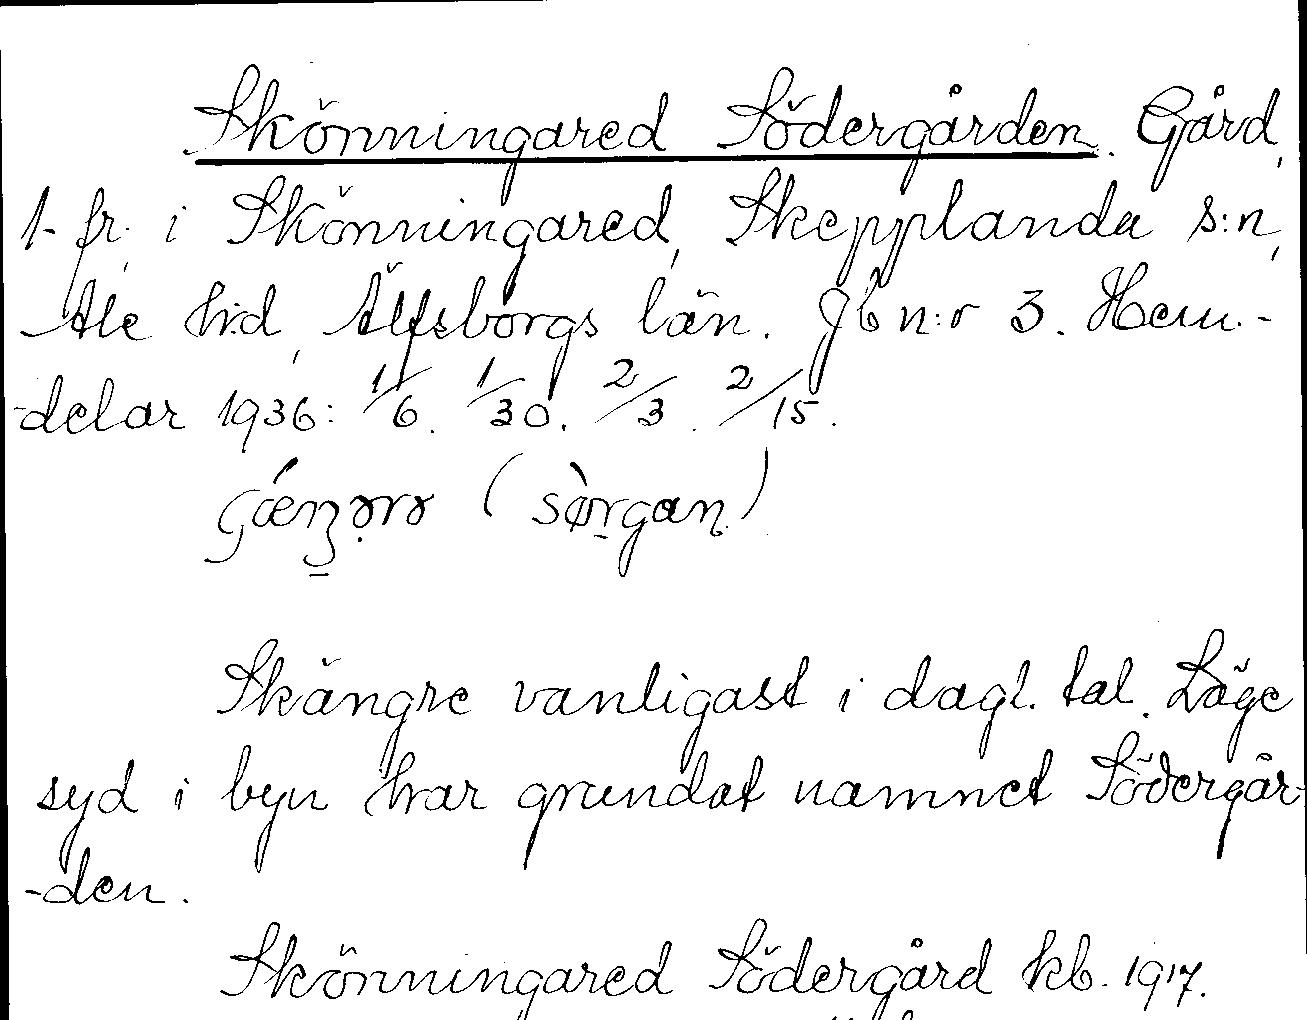 Skönningared Södergården. Gård,
1 fr. i Skönningared, Skepplanda s:n,
Ale h:d, Älfsborgs län. Jb n:r 3. Hem-
-delar 1936: 1/6. 1/30. 2/3. 2/15.
(sö̀rgan)
Skängre vanligast i dagl. tal. Läge
syd i byn har grundat namnet Södergår-
-den.
Skönningared Södergård kb. 1917.